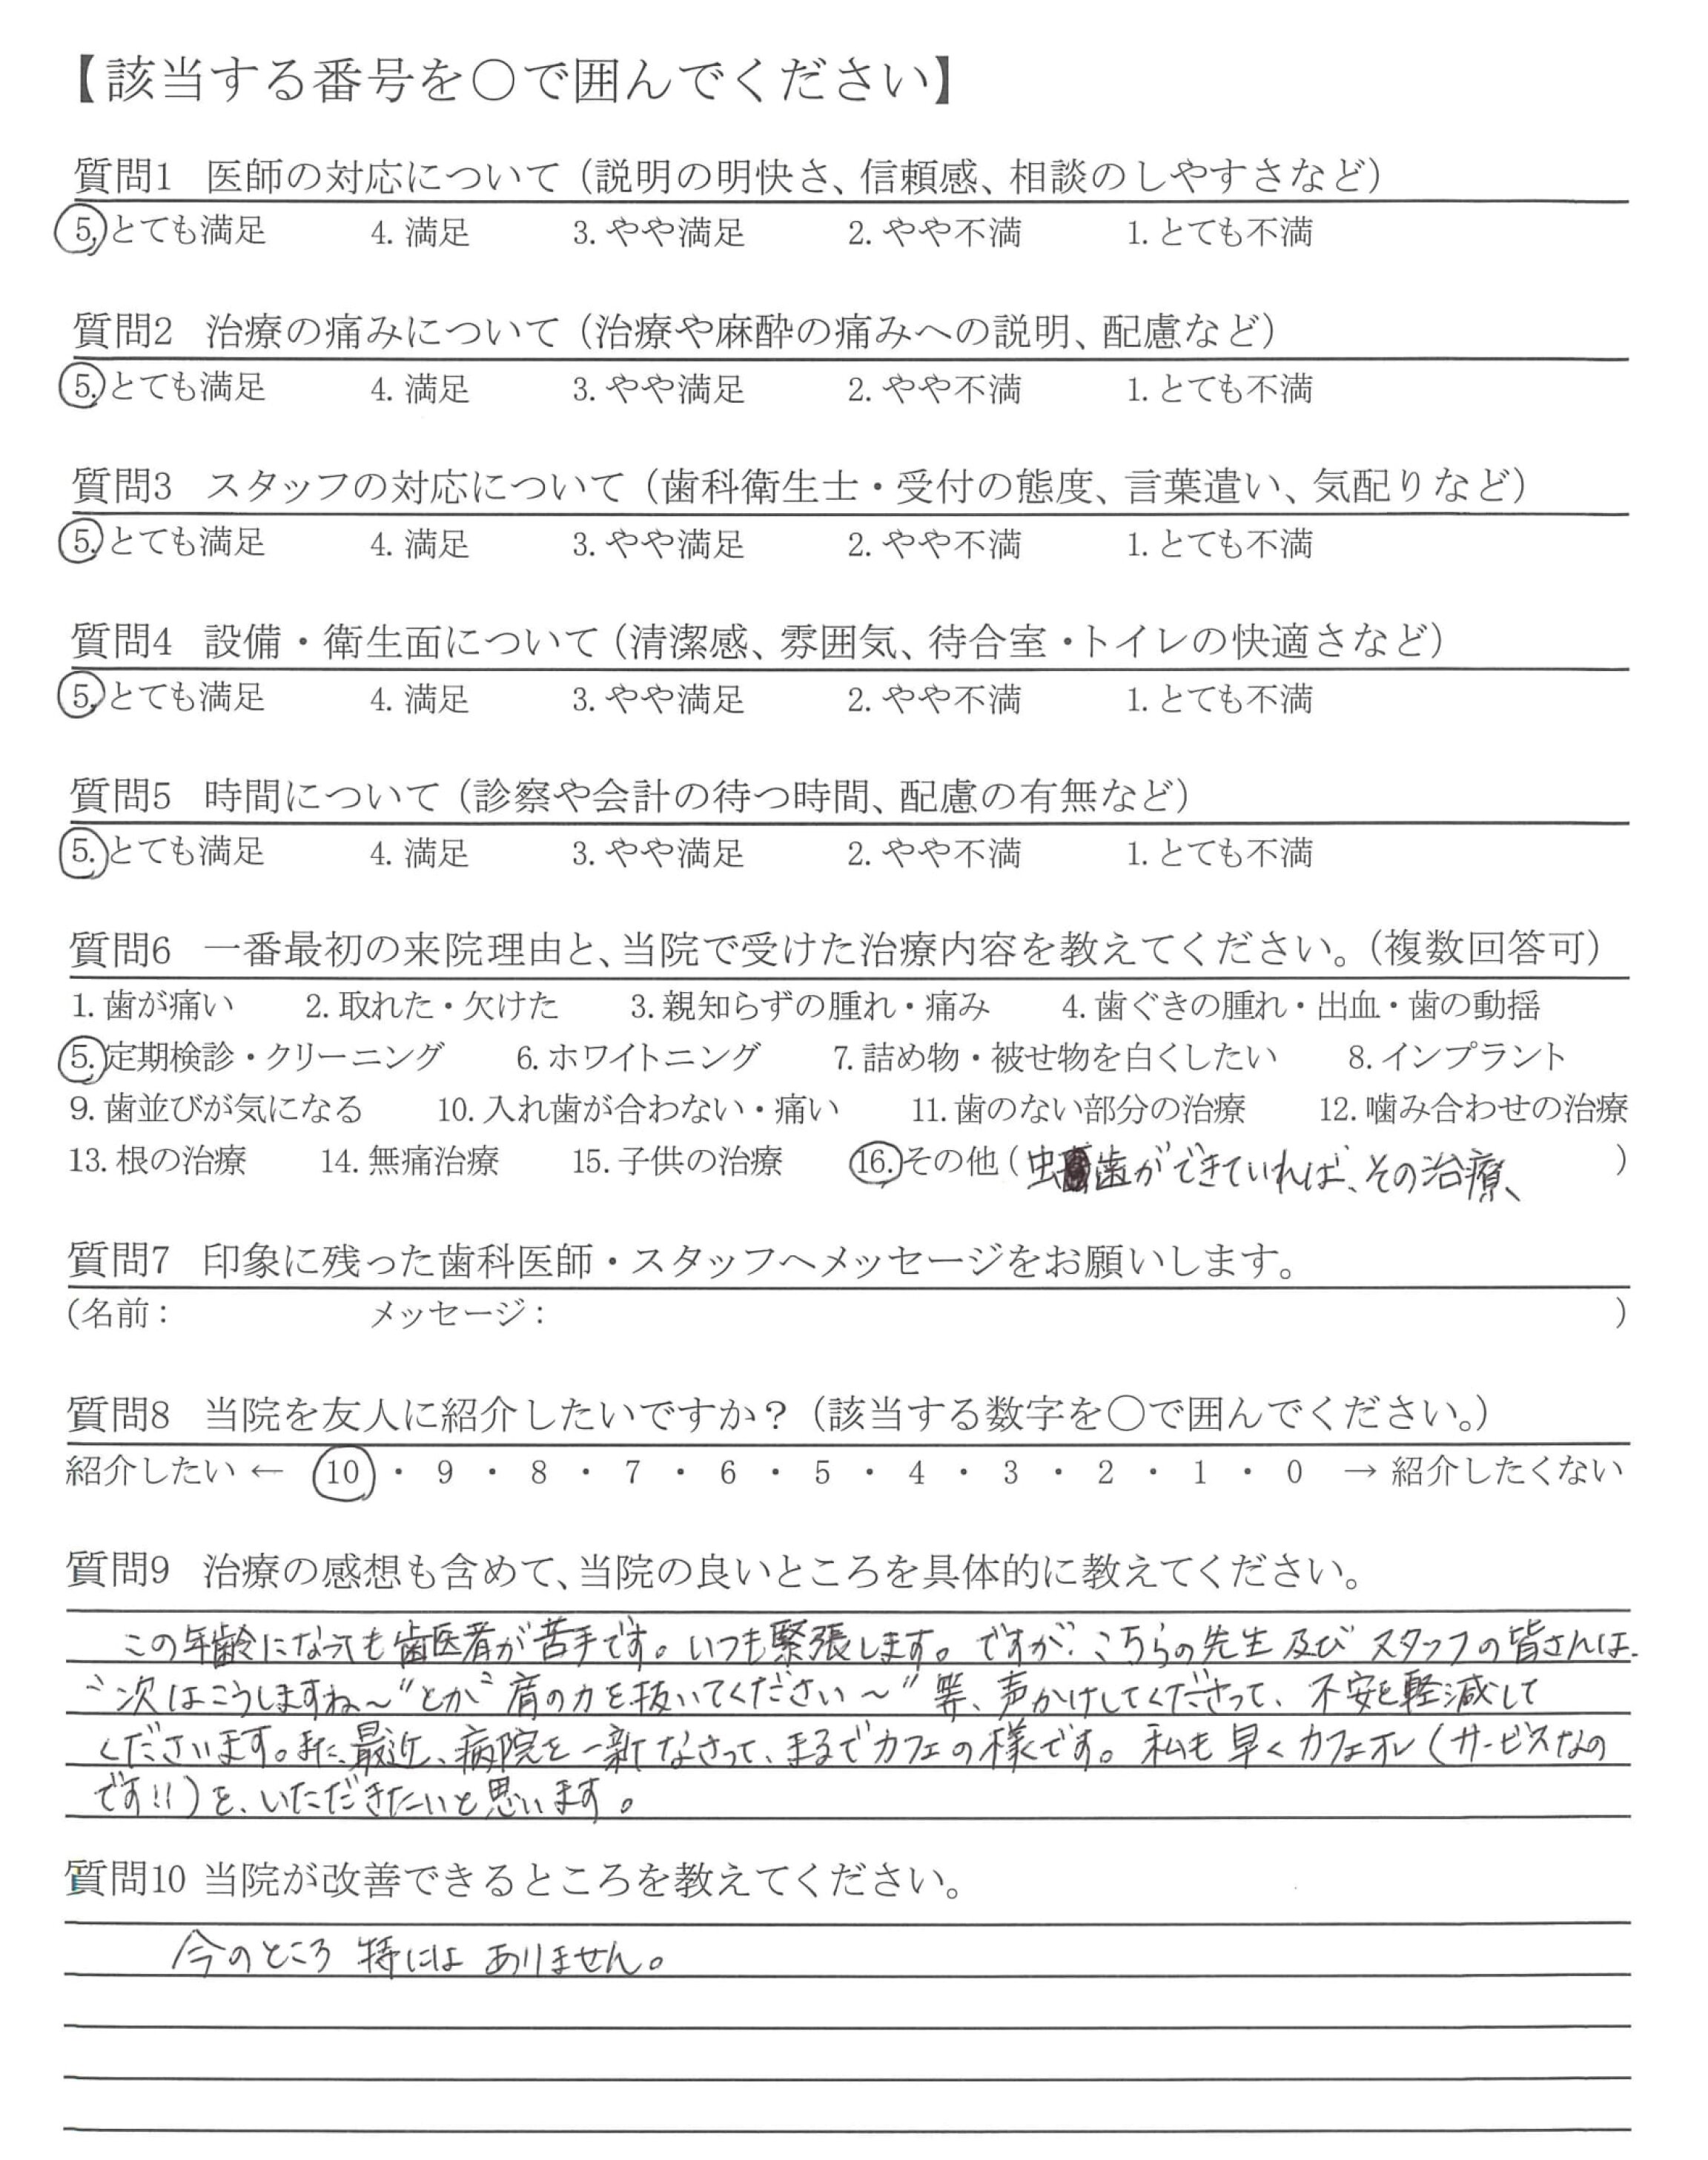 【該当する番号を○で囲んでください】
質問1 医師の対応について（説明の明快さ、信頼感、相談のしやすさなど）
5. とても満足 4. 満足 3. やや満足 2. やや不満 1. とても不満
質問2 治療の痛みについて（治療や麻酔の痛みへの説明、配慮など）
5. とても満足 4. 満足 3. やや満足 2. やや不満 1. とても不満
質問3 スタッフの対応について（歯科衛生士・受付の態度、言葉遣い、気配りなど）
5. とても満足 4. 満足 3. やや満足 2. やや不満 1. とても不満
質問4 設備・衛生面について（清潔感、雰囲気、待合室・トイレの快適さなど）
5. とても満足 4. 満足 3. やや満足 2. やや不満 1. とても不満
質問5 時間について（診察や会計の待つ時間、配慮の有無など）
5. とても満足 4. 満足 3. やや満足 2. やや不満 1. とても不満
質問6 一番最初の来院理由と、当院で受けた治療内容を教えてください。（複数回答可）
1. 歯が痛い 2. 取れた・欠けた 3. 親知らずの腫れ・痛み 4. 歯ぐきの腫れ・出血・歯の動揺
5. 定期検診・クリーニング 6. ホワイトニング 7. 詰め物・被せ物を白くしたい 8. インプラント
9. 歯並びが気になる 10. 入れ歯が合わない・痛い 11. 歯のない部分の治療 12. 噛み合わせの治療
13. 根の治療 14. 無痛治療 15. 子供の治療 16. その他（虫歯ができていれば、その治療、）
質問7 印象に残った歯科医師・スタッフへメッセージをお願いします。
（名前： メッセージ： ）
質問8 当院を友人に紹介したいですか？（該当する数字を○で囲んでください。）
紹介したい ← 10 ・ 9 ・ 8 ・ 7 ・ 6 ・ 5 ・ 4 ・ 3 ・ 2 ・ 1 ・ 0 → 紹介したくない
質問9 治療の感想も含めて、当院の良いところを具体的に教えてください。
この年齢になっても歯医者が苦手です。いつも緊張します。ですが、こちらの先生及びスタッフの皆さんは、
"次はこうしますね～"とか"肩の力を抜いてください～"等、声かけしてくださって、不安を軽減して
くださいます。また、最近、病院を一新なさって、まるでカフェの様です。私も早くカフェオレ（サービスなの
です!!）を、いただきたいと思います。
質問10 当院が改善できるところを教えてください。
今のところ 特には ありません。